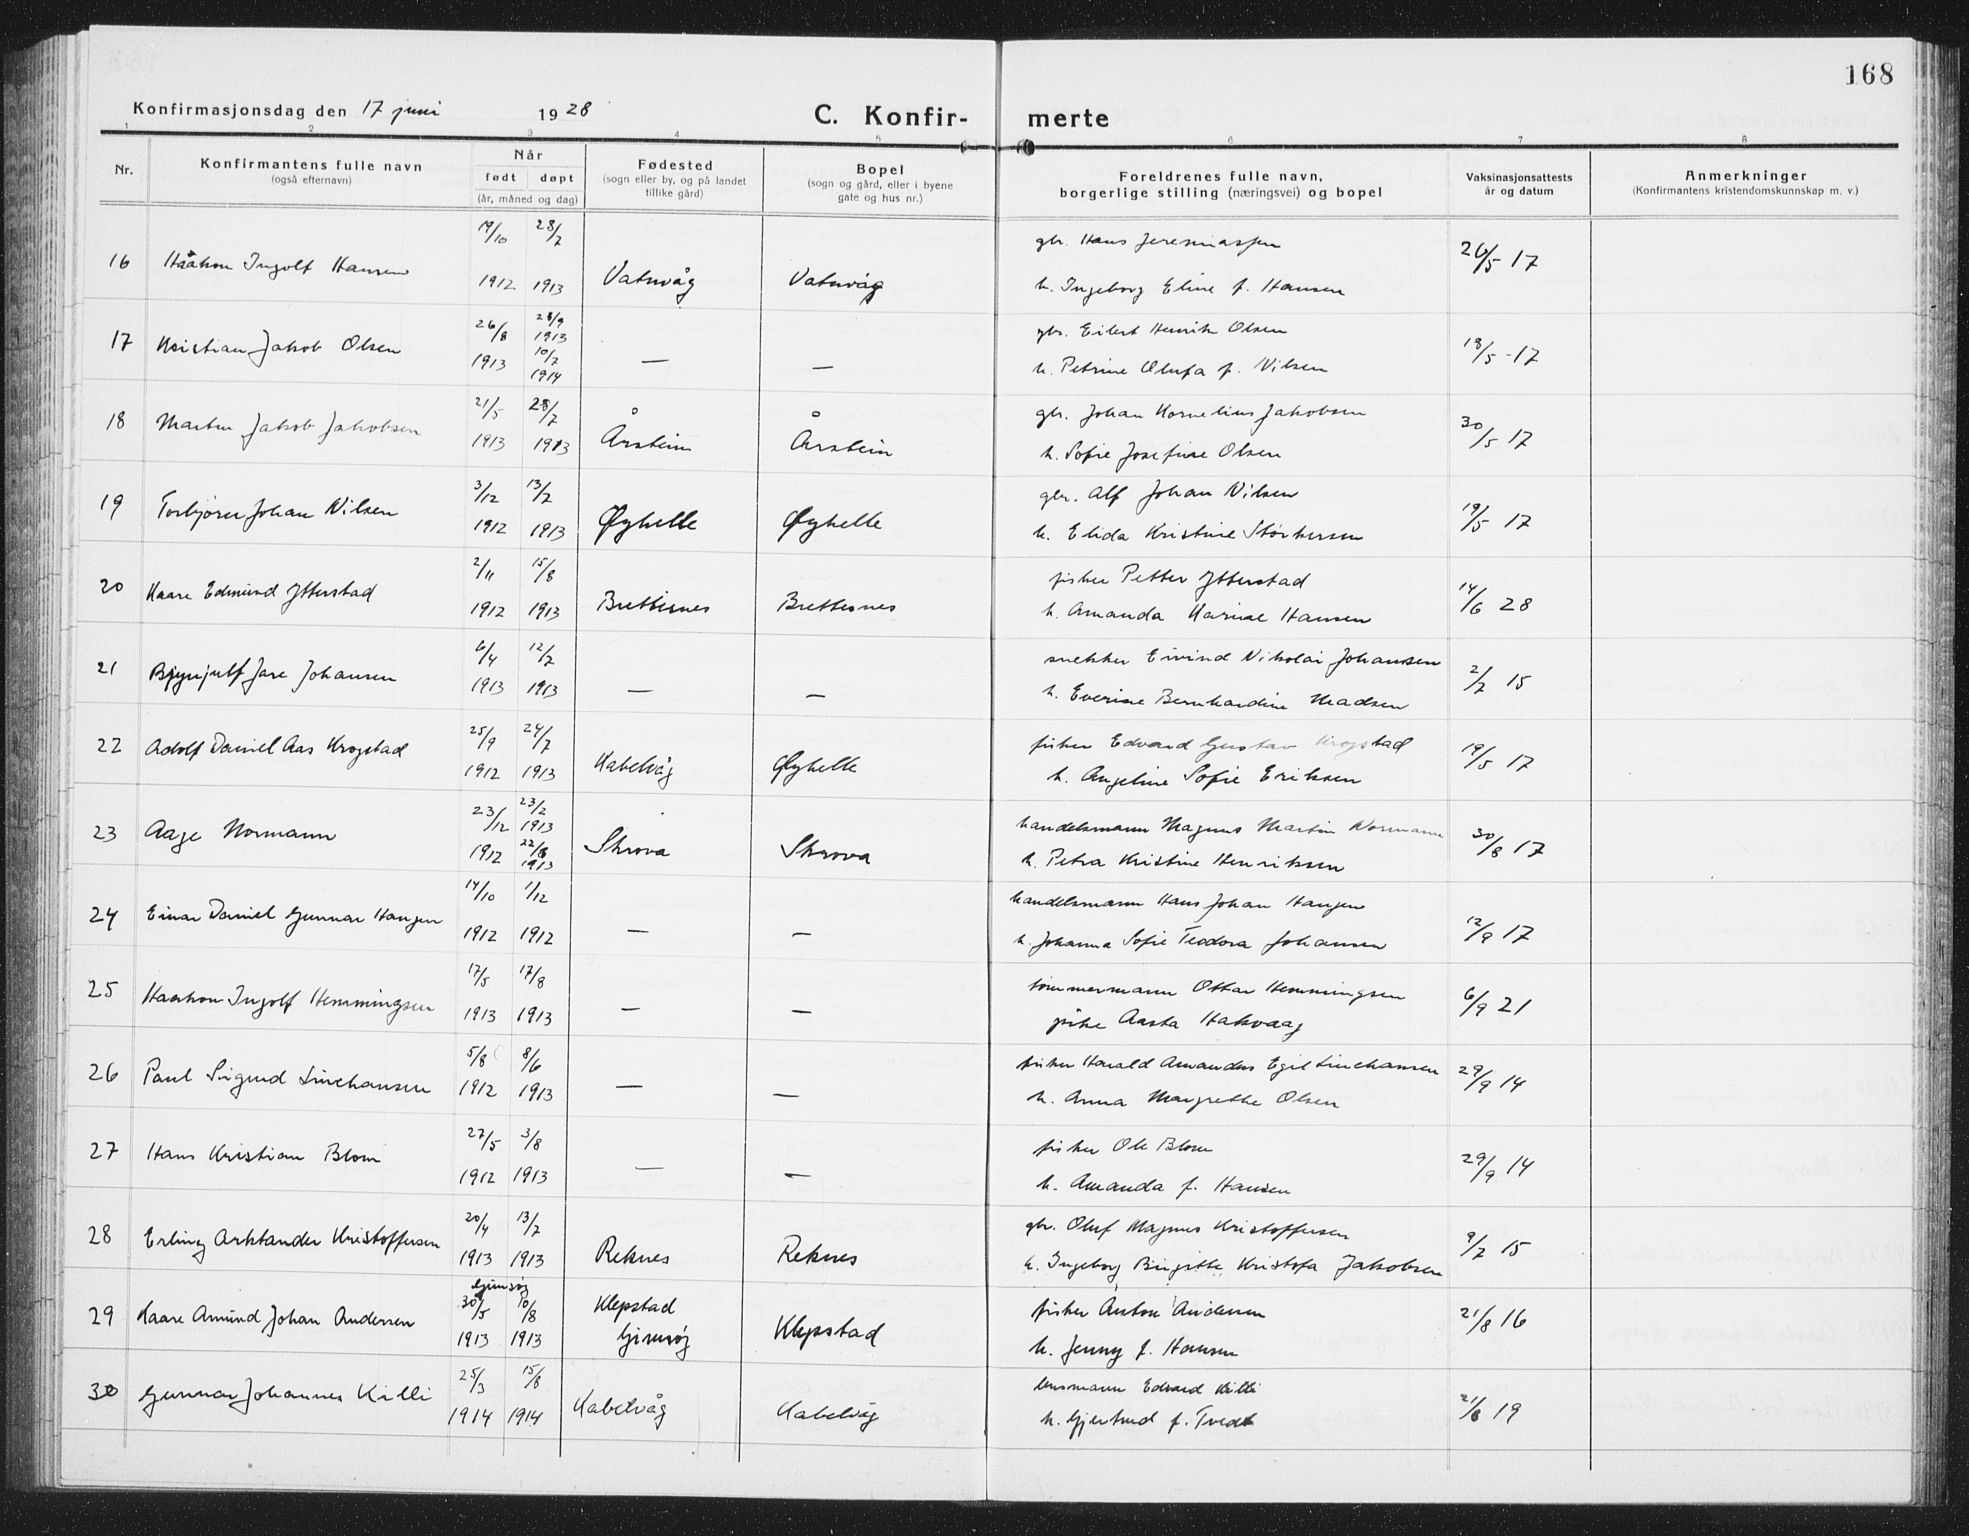 168
Konfirmasjonsdag den 17 juni 1928
C. Konfir- merte
1 2 3 4 5 6 7 8
Nr. Konfirmantens fulle navn (også efternavn) Når født døpt (år, måned og dag) Fødested (sogn eller by, og på landet tillike gård) Bopel (sogn og gård, eller i byene gate og hus nr.) Foreldrenes fulle navn, borgerlige stilling (næringsvei) og bopel Vaksinasjonsattests år og datum Anmerkninger (Konfirmantens kristendomskunnskap m. v.)
19/10 28/7 gbr. Hans Jeremiassen
16 Håakon Ingolf Hansen 1912 1913 Vatnvåg Vatnvåg h. Ingeborg Eline f. Hansen 26/5 17
26/8 28/9 1913 gbr. Eilert Henrik Olsen
17 Kristian Jakob Olsen 1913 10/7 1914 — — h. Petrine Olufa f. Nilsen 18/5 - 17
21/5 28/7 gbr. Johan Kornelius Jakobsen
18 Martin Jakob Jakobsen 1913 1913 Årstein Årstein h. Sofie Josefine Olsen 30/5 17
3/12 13/7 gbr. Alf Johan Nilsen
19 Torbjørn Johan Nilsen 1912 1913 Øyhelle Øyhelle h. Elida Kristine Størkersen 19/5 17
2/11 15/8 fisker Petter Ytterstad
20 Kaare Edmund Ytterstad 1912 1913 Brettesnes Brettesnes h. Amanda Karine Hansen 14/6 28
6/4 12/7 snekker Eivind Nikolai Johansen
21 Johansen 1913 1913 — — h. Everine Bernhardine Madsen 2/7 15
25/9 24/7 fisker Edvard Gustav Krogstad
22 Adolf Daniel Aas Krogstad 1912 1913 Kabelvåg Øyhelle h. Angeline Sofie Eriksen 19/5 17
23/12 23/2 1913 handelsmann Magnus Martin Normann
23 Aage Normann 1912 22/8 1913 Skrova Skrova h. Petra Kristine Henriksen 30/8 17
14/10 1/12 handelsmann Hans Johan Haugen
24 Einar Daniel Gunnar Haugen 1912 1912 — — h. Johanna Sofie Teodora Johansen 12/9 17
17/5 17/8 tømmermann Ottar Hemmingsen
25 Haakon Ingolf Hemmingsen 1913 1913 — — pike Aasta Hakvaag 6/9 21
5/8 8/6 fisker Harald Amandus Egil Linchausen
26 Paul Sigurd Linchausen 1912 1913 — — h. Anna Margrethe Olsen 29/9 14
27/5 3/8 fisker Ole Blom
27 Hans Kristian Blom 1912 1913 — — h. Amanda f. Hansen 29/9 14
20/4 13/7 gbr. Oluf Magnus Kristoffersen
28 Erling Arktander Kristoffersen 1913 1913 Reknes Reknes h. Ingeborg Birgitte Kristofa Jakobsen 9/7 15
Gimsøy
30/5 10/8 Klepstad fisker Anton Andersen
29 Kaare Amund Johan Andersen 1913 1913 Gimsøy Klepstad h. Jenny f. Hansen 21/8 16
25/3 15/8 lensmann Edvard Killi
30 Gunnar Johannes Killi 1914 1914 Kabelvåg Kabelvåg h. Gjertrud f. Tvedt 21/8 19